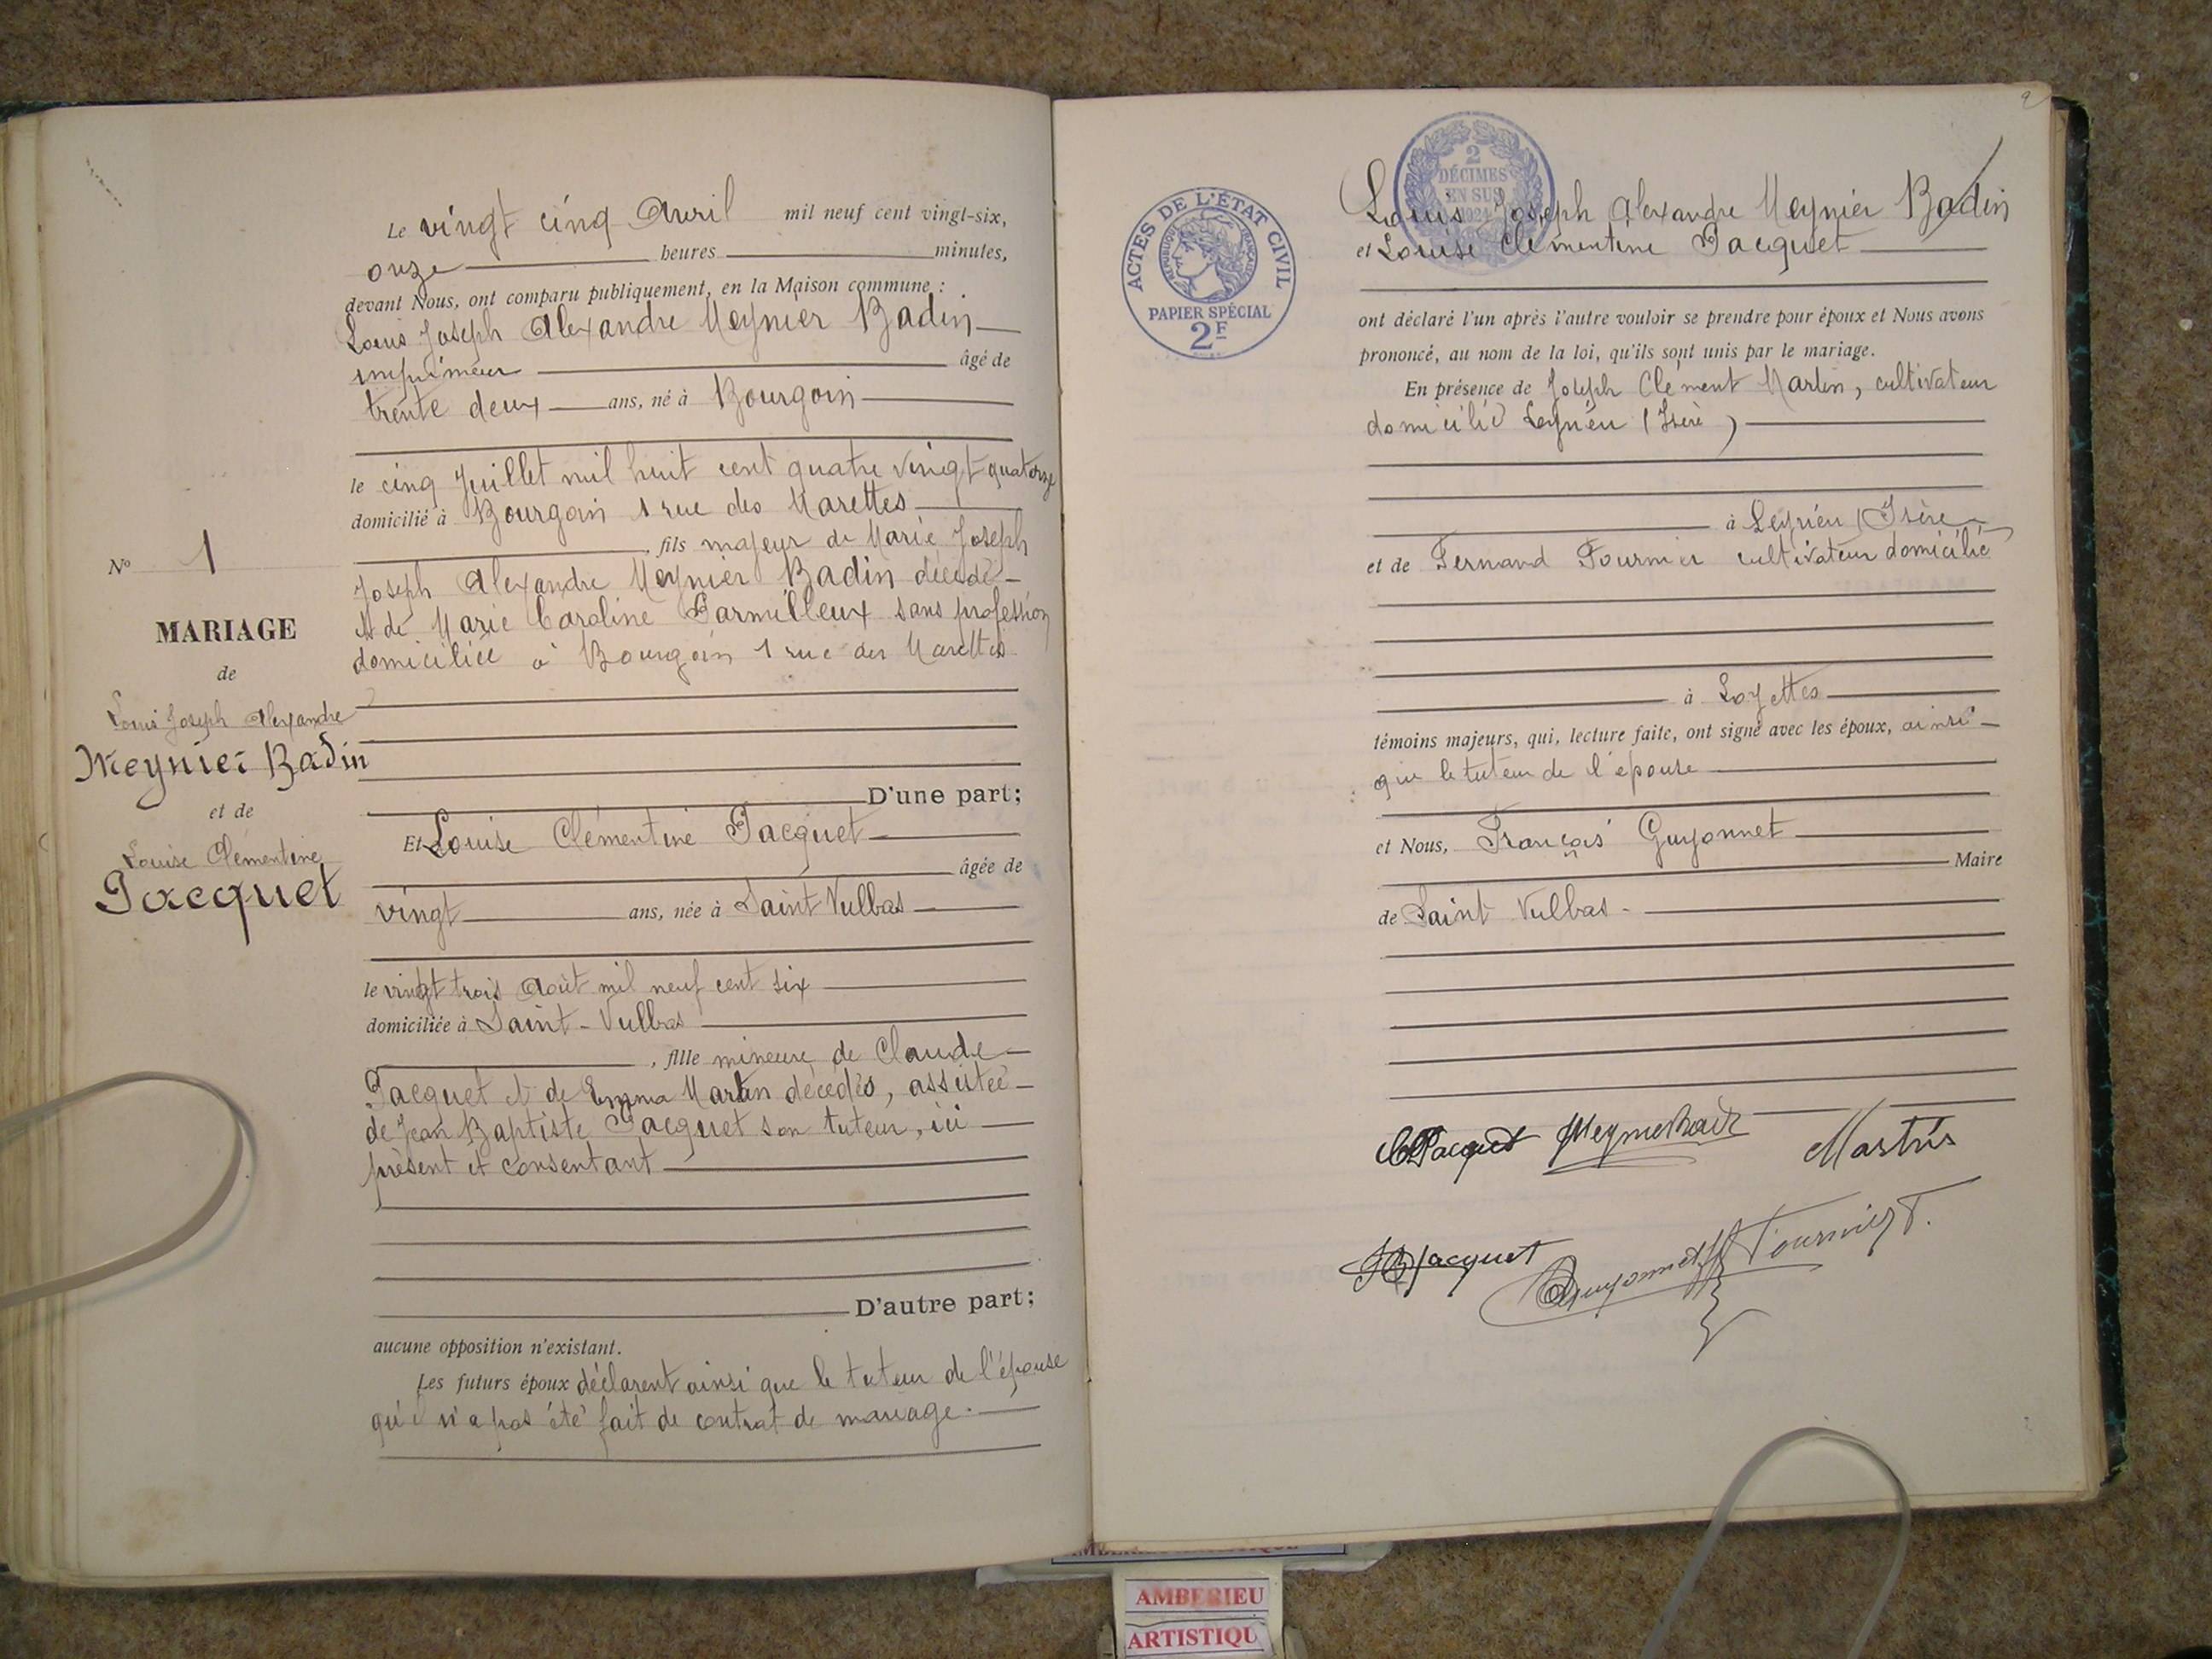 Le vingt cinq Avril mil neuf cent vingt-six,
onze heures minutes,
devant Nous, ont comparu publiquement, en la Maison commune :
Louis Joseph Alexandre Meynier Badin
imprimeur âgé de
trente deux ans, né à Bourgoin
le cinq Juillet mil huit cent quatre vingt quatorze
domicilié à Bourgoin 1 rue des Marettes
, fils majeur de Marie Joseph
Joseph Alexandre Meynier Badin décédé
et de Marie Caroline Parmilleux sans profession
domiciliée à Bourgoin 1 rue des Marettes
D'une part;
Et Louise Clémentine Jacquet
âgée de
vingt ans, née à Saint Vulbas
le vingt trois Août mil neuf cent six
domiciliée à Saint-Vulbas
, fille mineure de Claude
Jacquet et de Emma Martin décédés, assistée
de Jean Baptiste Jacquet son tuteur, ici
présent et consentant
D'autre part;
aucune opposition n'existant.
Les futurs époux déclarent ainsi que le tuteur de l'épouse
qu'il n'a pas été fait de contrat de mariage.
N° 1
MARIAGE
de
Louis Joseph Alexandre
Meynier Badin
et de
Louise Clémentine
Jacquet
ACTES DE L'ÉTAT CIVIL
RÉPUBLIQUE FRANÇAISE
PAPIER SPÉCIAL
2F
2
DÉCIMES
EN SUS
1924
Louis Joseph Alexandre Meynier Badin
et Louise Clémentine Jacquet
ont déclaré l'un après l'autre vouloir se prendre pour époux et Nous avons
prononcé, au nom de la loi, qu'ils sont unis par le mariage.
En présence de Joseph Clément Martin, cultivateur
domicilié Leyrieu (Isère)
à Leyrieu (Isère
et de Fernand Fournier cultivateur domicilié
à Loyettes
témoins majeurs, qui, lecture faite, ont signé avec les époux, ainsi
que le tuteur de l'épouse
et Nous, François Guyonnet
Maire
de Saint Vulbas.
Jacquet Martin
JB Jacquet Guyonnet Fournier F.
AMBERIEU
ARTISTIQU